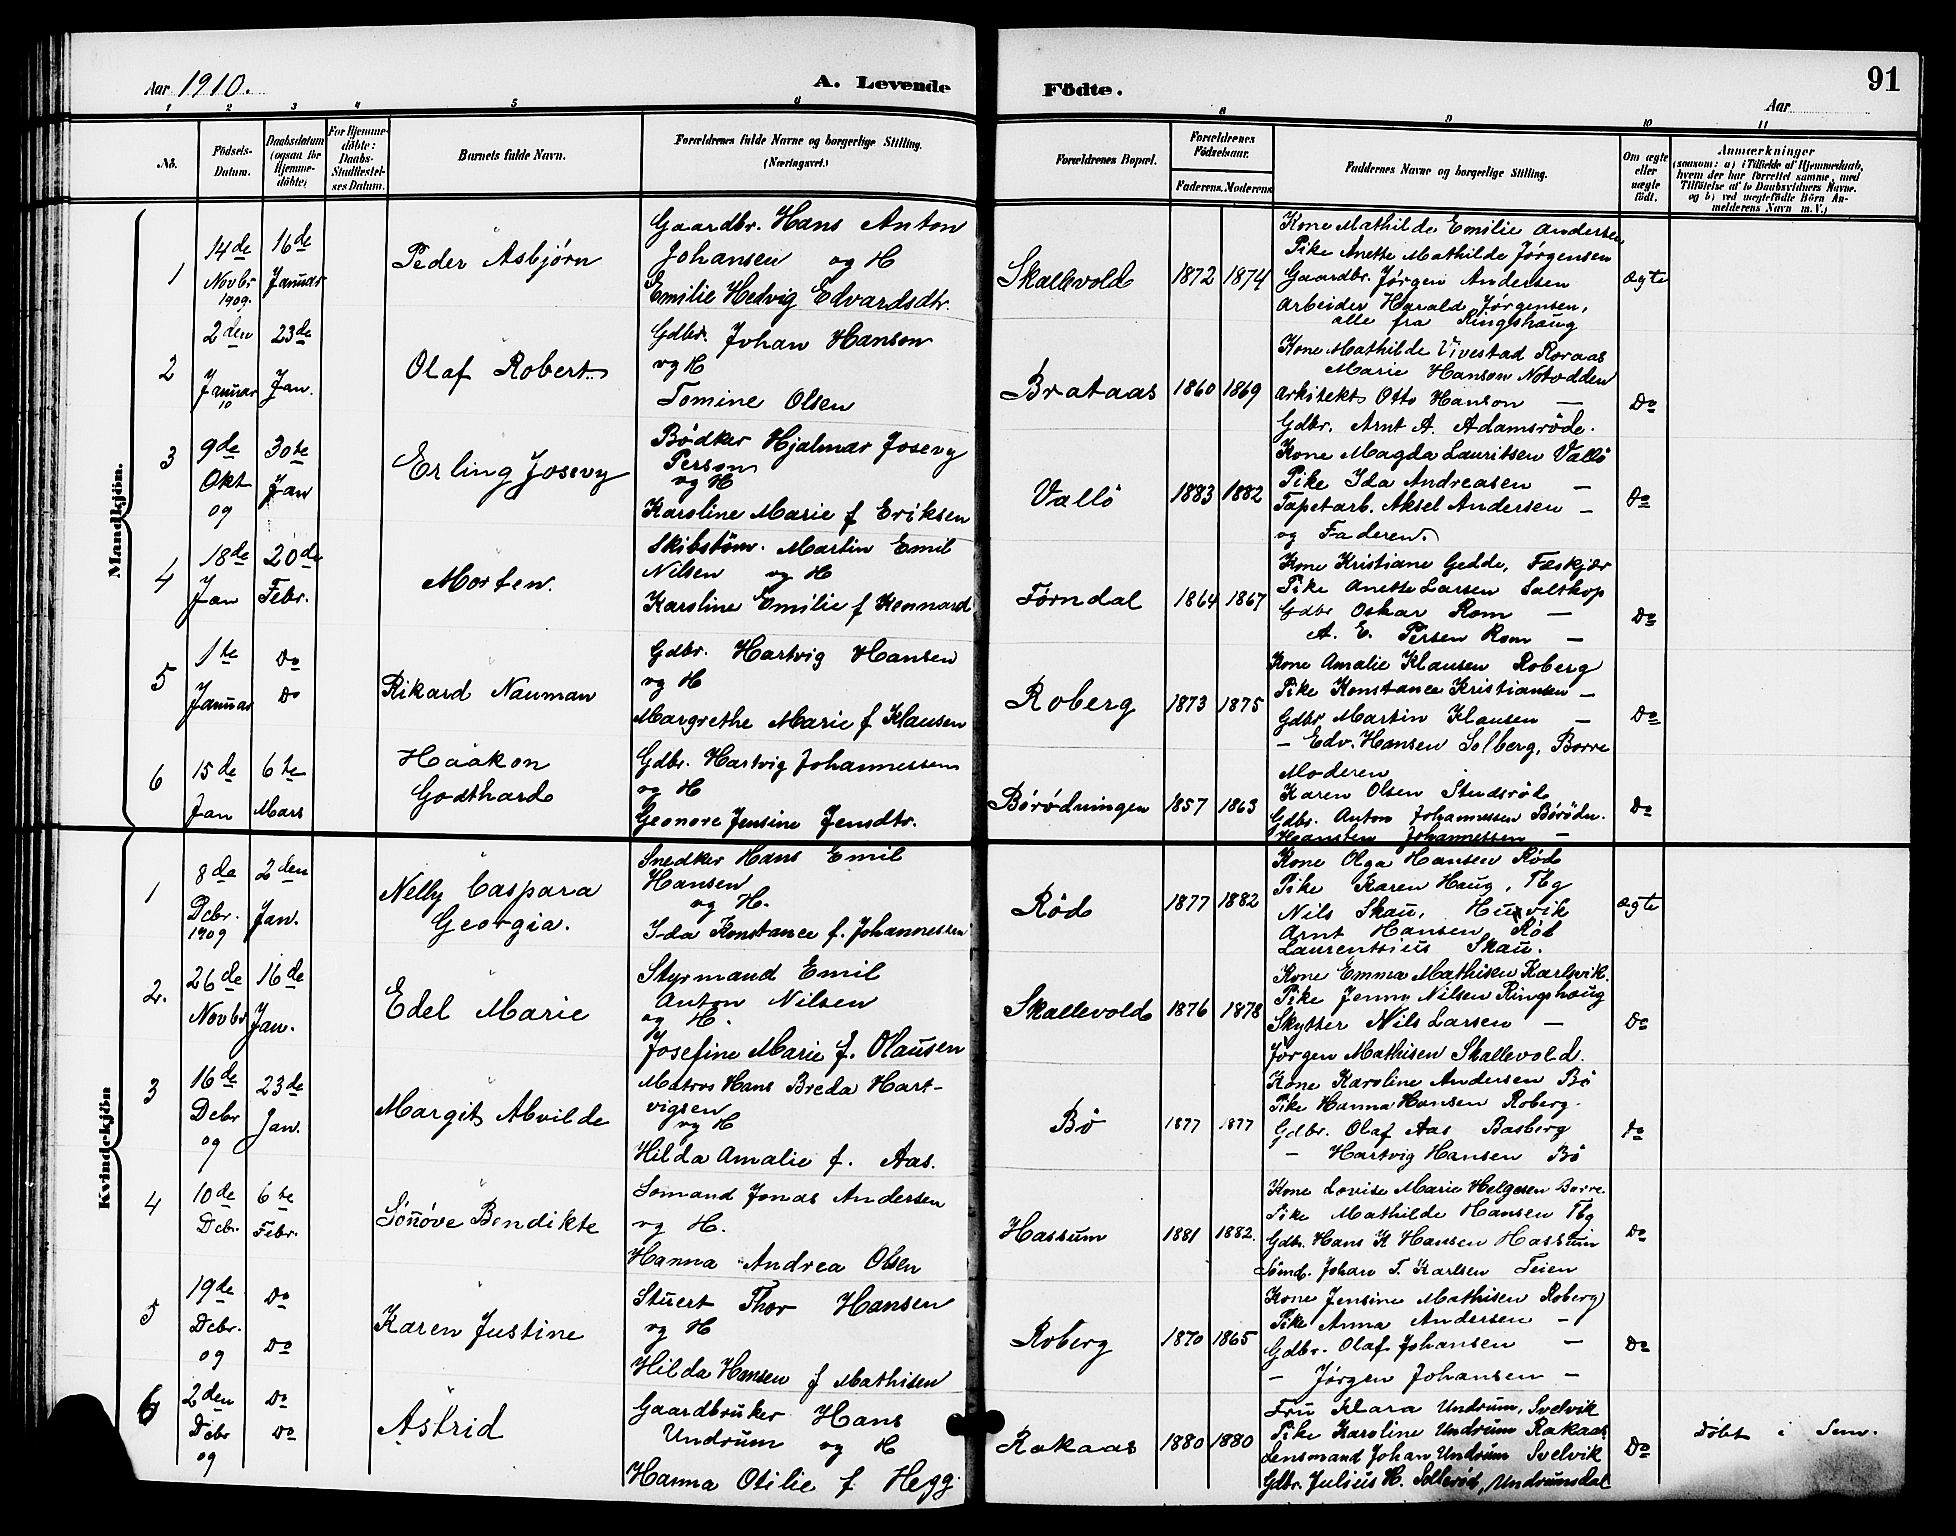 Aar 1910.
A. Levende
Födte.
91
Aar
1 2 3 4 5 6 8 9 10 11
No.
Födsels-
Datum.
Daabsdatum
(ogsaa for
Hjemme-
döbte)
For Hjemme-
döbte:
Daabs-
Stadfæstel-
ses Datum.
Barnets fulde Navn.
Forældrenes fulde Navne og borgerlige Stilling.
(Næringsvei.)
Forældrenes Bopæl.
Forældrenes
Födselsaar.
Faderens. Moderens
Faddernes Navne og borgerlige Stilling.
Om ægte
eller
uægte
födt.
Anmærkninger
(saasom: a) i Tilfælde af Hjemmedaab,
hvem der har forrettet samme, med
Tilföielse af to Daabsvidners Navne.
og b) ved uægtefödte Börn An-
melderens Navn m. V.)
Mandkjön.
1
14de
Novbr
1909.
16de
Januar
Peder Asbjørn
Gaardbr. Hans Anton
Johansen og H
Emilie Hedvig Edvardsdtr.
Skallevold
1872 1874
Kone Mathilde Emilie Andersen
Pike Anette Mathilde Jørgensen
Gaardbr. Jørgen Andersen
Arbeider Harald Jørgensen,
alle fra Ringshaug
ægte
2
2den
Januar
10
23de
Jan.
Olaf Robert
Gdbr. Johan Hanson
og H
Tomine Olsen
Brataas
1860 1869
Kone Mathilde Vivestad Roraas
Marie Hanson Notodden
Arkitekt Otto Hanson —
Gdbr. Arnt A. Adamsröde.
Do
3
9de
Okt
09
30te
Jan
Erling Josevy
Bødker Hjalmar Josevy
Person
og H
Karoline Marie f Eriksen
Vallö
1883 1882
Kone Magda Lauritsen Vallö
Pike Ida Andreasen —
Tapetarb. Aksel Andersen —
og Faderen.
Do
4
18de
Jan
20de
Febr.
Morten.
Skibstöm. Martin Emil
Nilsen og H
Karoline Emilie f Kennard
Førndal
1864 1867
Kone Kristiane Gedde, Fæskjær
Pike Anette Larsen Saltkop
Gdbr Oskar Rom —
A. E. Persen Rom —
Do
5
1te
Januar
Do
Do
Rikard Nauman
Gdbr. Hartvig Hansen
og H
Margrethe Marie f Klausen
Roberg
1873 1875
Kone Amalie Klausen Roberg
Pike Konstance Kristiansen —
Gdbr Martin Klausen —
— Edv. Hansen Solberg, Borre
Do
6
15de
Jan
6te
Mars
Haakon
Godthard
Gdbr. Hartvig Johannessen
og H
Geonore Jensine Jensdtr.
Börödningen
1857 1863
Moderen
Karen Olsen Studsröd
Gdbr. Anton Johannessen Börödn.
Johannessen —
Do
Kvindekjön
1
8de
Debr.
1909
2den
Jan.
Nelly Caspara
Georgia.
Snedker Hans Emil
Hansen
og H.
Ida Konstance f. Johannessen
Röd
1877 1882
Kone Olga Hansen Röd
Pike Karen Haug, Tbg
Nils Skau, Husvik
Arnt Hansen Röd
Laurentsius Skau.
ægte
2.
26de
Novbr
16de
Jan.
Edel Marie
Styrmand Emil
Anton Nilsen
og H.
Josefine Marie f. Olausen
Skallevold
1876 1878
Kone Emma Mathisen Karlsvik.
Pike Jenny Nilsen Ringshaug
Skytter Nils Larsen —
Jørgen Mathisen Skallevold.
Do
3
16de
Debr
09
23de
Jan.
Margit Alvilde
Matros Hans Breda Hart-
vigsen
og H
Hilda Amalie f. Aas.
Bö
1877 1877
Kone Karoline Andersen Bö
Pike Hanna Hansen Roberg.
Gdbr. Olaf Aas Basberg
— Hartvig Hansen Bö
Do
4
10de
Debr.
6te
Febr.
Sönöve Bendikte
Sömand Jonas Andersen
og H.
Hanna Andrea Olsen
Hassum
1881 1882.
Kone Lovise Marie Helgesen Borre.
Pike Mathilde Hansen Tbg
Gdbr. Hans K Hansen Hassum
Sömd. Johan T. Karlsen Teien
Do
5
19de
Debr.
09
Do
Do
Karen Justine
Stuert Thor Hansen
og H
Hilda Hansen f Mathisen
Roberg
1870 1865
Kone Jensine Mathisen Roberg
Pike Anna Andersen —
Gdbr. Olaf Johansen —
— Jørgen Johansen —
Do
6
2den
Debr
09
Do
Do
Astrid
Gaardbruker Hans
Undrum og H
Hanna Otilie f Hegg.
Rakaas
1880 1880
Fru Klara Undrum, Svelvik
Pike Karoline Undrum Rakaas
Lensmand Johan Undrum Svelvik
Gdbr. Julius H. Solleröd, Undrumsdal
Do
Döbt i Sem.